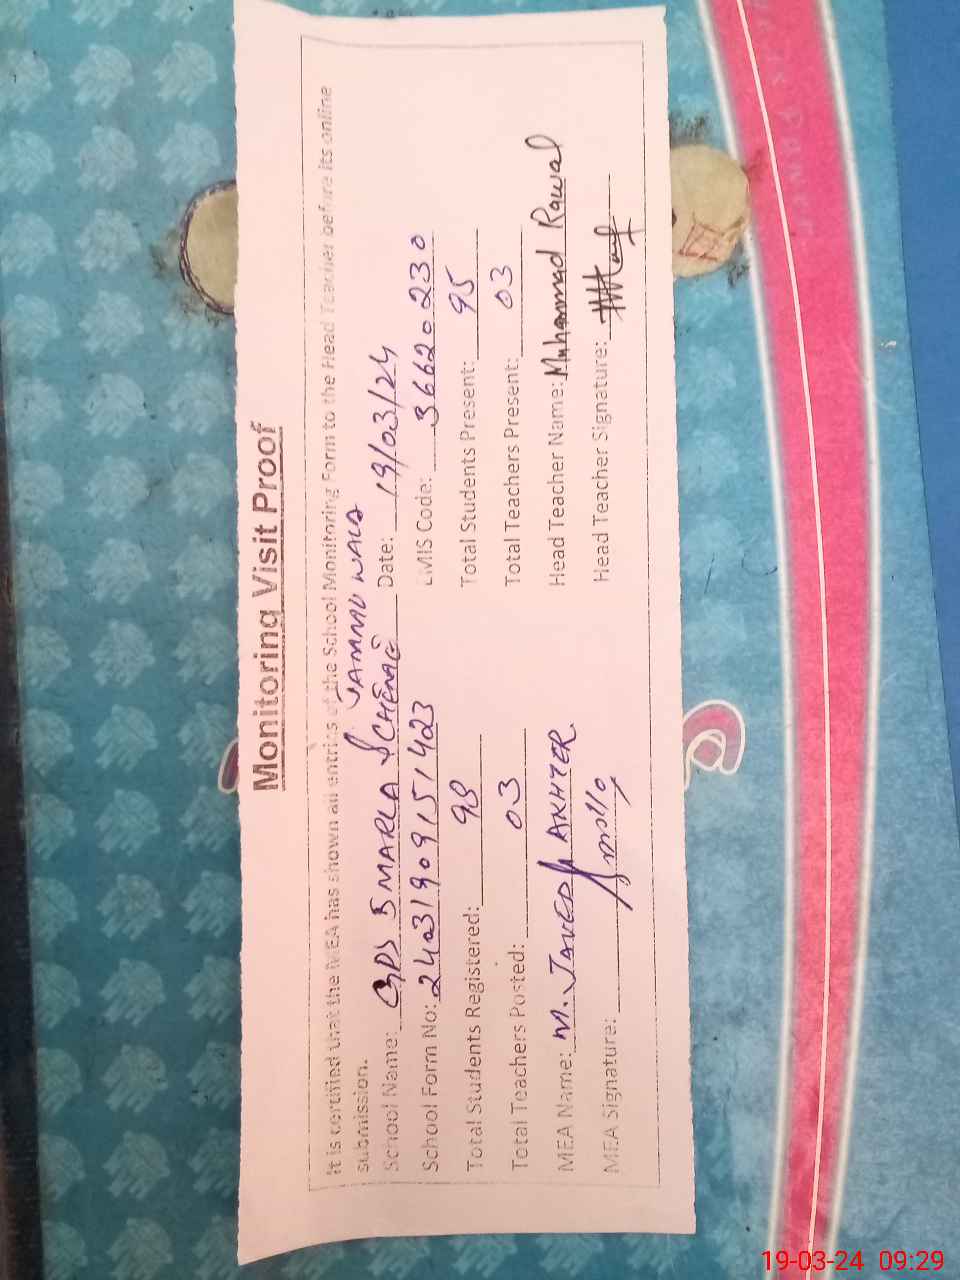 Monitoring Visit Proof
It is certified that the MEA has shown all entries of the School Monitoring Form to the Head Teacher before its online
submission.
JAMMU WALA
School Name: GPS 5 MARLA SCHEME Date: 19/03/24
School Form No: 24031909151423 EMIS Code: 36620230
Total Students Registered: 98 Total Students Present: 95
Total Teachers Posted: 03 Total Teachers Present: 03
MEA Name: M. JAVED AKHTER Head Teacher Name: Muhammad Rawal
MEA Signature: Head Teacher Signature:
19-03-24 09:29